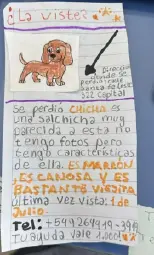 ¿La viste?
Dirección
donde se
perdió:
122 Capital
Se perdió CHICHA es
una salchicha muy
parecida a esta no
tengo fotos pero
tengo características
de ella. ES MARRÓN
ES CANOSA Y ES
BASTANTE VIEJITA
última vez vista: 1 de
Julio.
Tel: +549
Tu ayuda vale